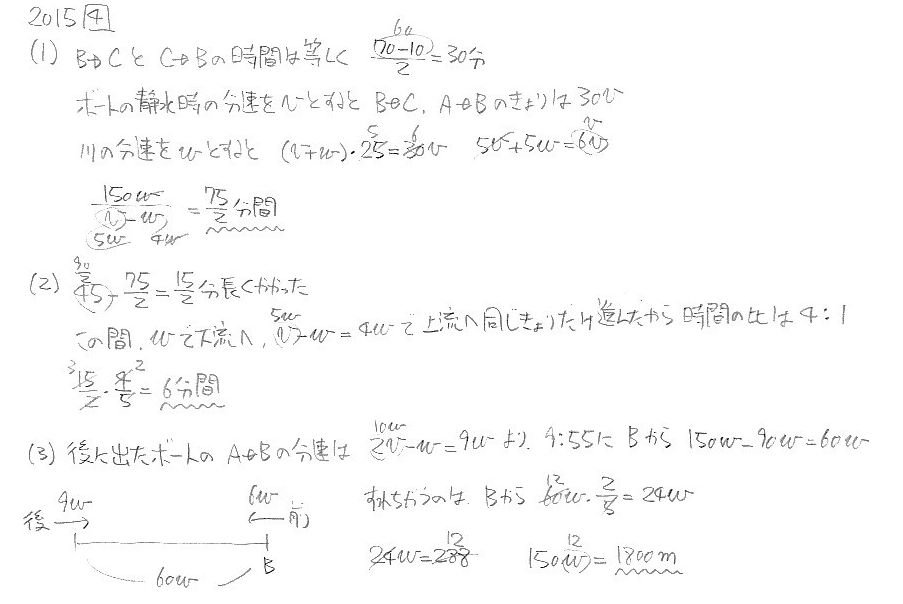 2015 4
(1) B→CとC→Bの時間は等しく (70-10)/2 = 30分 60
ボートの静水時の分速をvとすると B→C, A→Bのきょりは30v
川の分速をwとすると (v+w)・25=30v 5 6 5v+5w=6v v
150w/(v-w) = 75/2 分間
5w 4w
(2) 45 - 75/2 = 15/2 分長くかかった 90/2
この間、wで下流へ、v-w=4wで上流へ同じきょりだけ進んだから時間の比は4:1 5w
15/2・4/5 = 6分間 3 2
(3) 後に出たボートのA→Bの分速は 2v-w=9wより 9:55にBから 150w-90w=60w 10w
後 9w→ 6w← 前 すれちがうのは、Bから 60w・2/5=24w 12
60w B 24w=288 12 150w=1800m 12